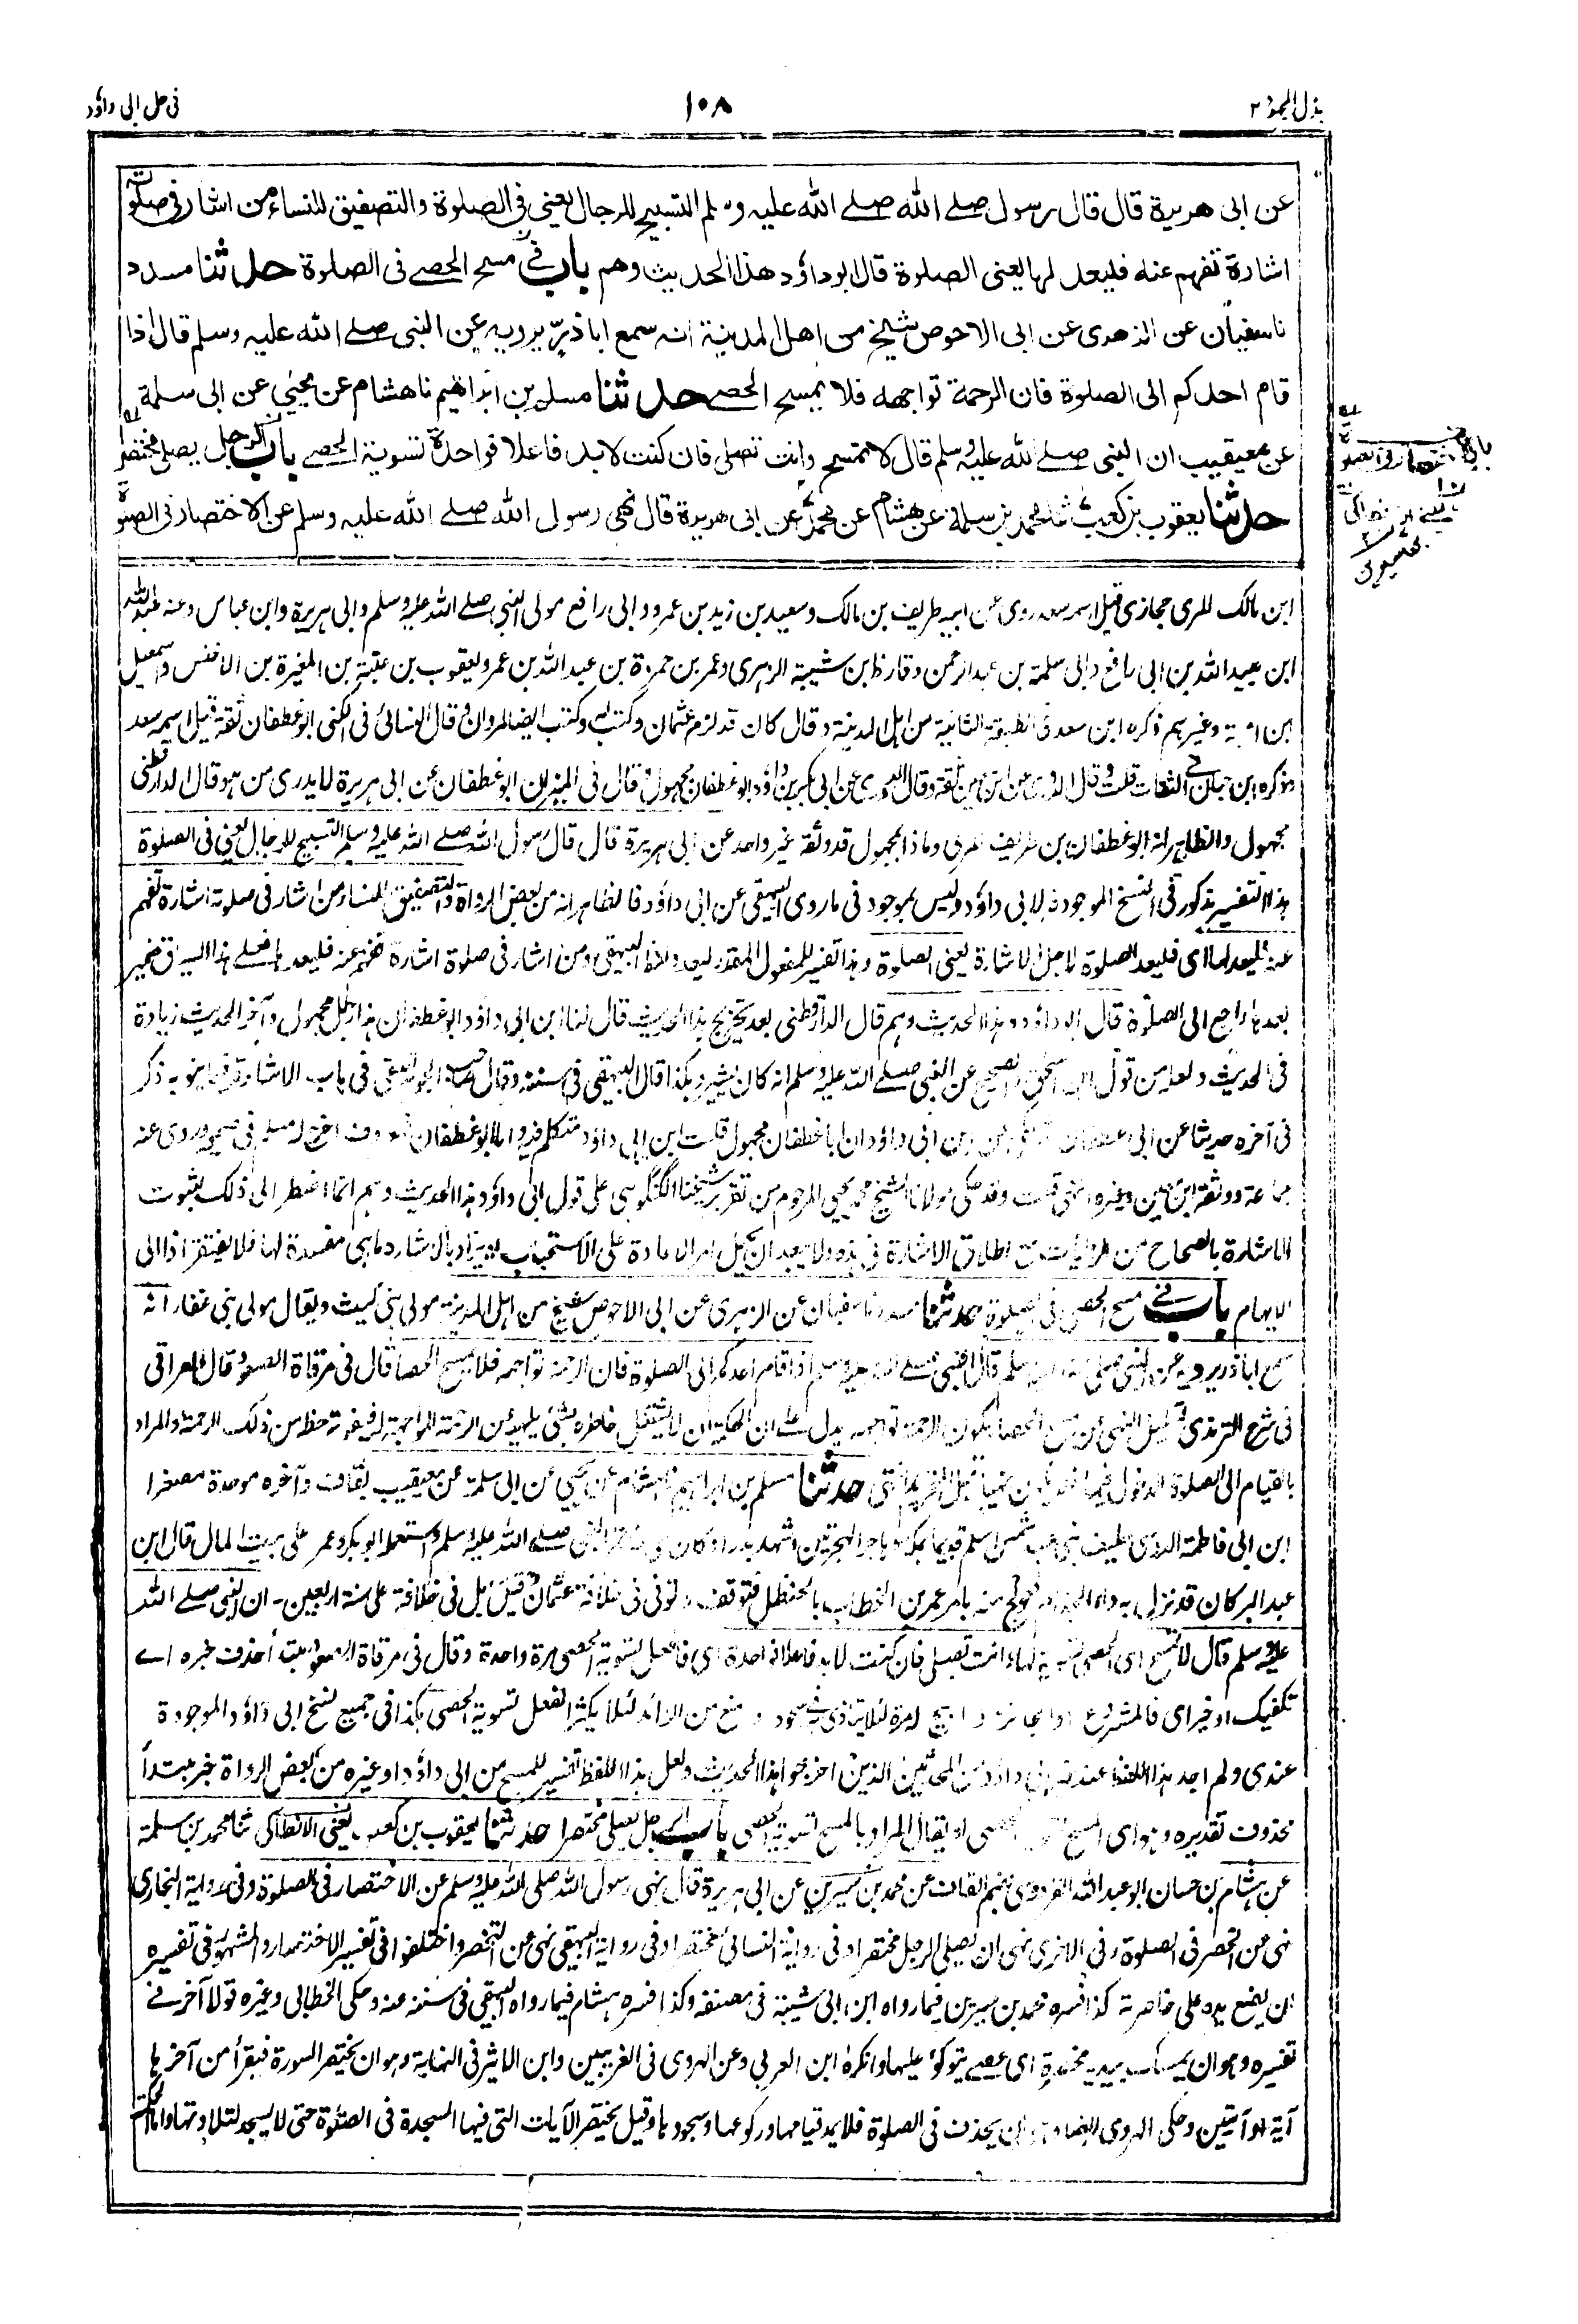 بذل المجهود ٢
١٠٨
فى حل ابى داؤد
عن ابى هريرة قال قال رسول صلے الله صلے الله عليه وسلم التسبيح للرجال يعنى فى الصلوة والتصفيق للنساء من اشار فى صلوته
اشارة تفهم عنه فليعد لها يعنى الصلوة قال ابو داؤد هذا الحديث وهم باب فى مسح الحصے فى الصلوة حدثنا مسدد
نا سفيان عن الزهرى عن ابى الاحوص شيخ من اهل المدينة انه سمع اباذر يرويه عن النبى صلے الله عليه وسلم قال اذا
قام احدكم الى الصلوة فان الرحمة تواجهه فلا يمسح الحصے حدثنا مسلم بن ابراهيم نا هشام عن يحيى عن ابى سلمة
عن معيقيب ان النبى صلے الله عليه وسلم قال لا تمسح وانت تصلى فان كنت لابد فاعلا فواحدة تسوية الحصے باب الرجل يصلى مختصرا
حدثنا يعقوب بن كعب ثنا محمد بن سلمة عن هشام عن محمد عن ابى هريرة قال نهى رسول الله صلے الله عليه وسلم عن الاختصار فى الصلوة
باب الاختصار فى الصلوة
يعنى الانطاكى
بن سيرين
ابن مالك المرى حجازى قيل اسمه سعد روى عن ابيه طريف بن مالك وسعيد بن زيد بن عمرو وابى رافع مولى النبى صلے الله عليه وسلم وابى هريرة وابن عباس وعنه عبد الله
ابن عبيد الله بن ابى رافع وابى سلمة بن عبد الرحمن وقارظ بن شيبة الزهرى وعمر بن حمزة بن عبد الله بن عمر ويعقوب بن عتبة بن المغيرة بن الاخنس واسمعيل
بن امية وغيرهم ذكره ابن سعد فى الطبقة الثانية من اهل المدينة وقال كان قد لزم عثمان وكتب له وكتب ايضا لمروان وقال النسائى فى الكنى ابو غطفان ثقة قيل اسمه سعد
وذكره ابن حبان فى الثقات قلت وقال الدورى عن ابن معين ثقة وقال عن ابى بكر بن داؤد ابو غطفان مجهول وقال فى الميزان ابو غطفان عن ابى هريرة لا يدرى من هو قال الدارقطنى
مجهول والظاهر انه ابو غطفان بن طريف المرى وما ذا بمجهول قد وثقه غير واحد عن ابى هريرة قال قال رسول الله صلے الله عليه وسلم التسبيح للرجال يعنى فى الصلوة
هذا التفسير مذكور فى النسخ الموجودة لابى داؤد وليس بموجود فى ما روى البيهقى عن ابى داؤد فالظاهر انه من بعض الرواة والتصفيق للنساء من اشار فى صلوته اشارة تفهم
عنه فليعد لها اى فليعد الصلوة لاجل الاشارة يعنى الصلوة وهذا تفسير للمفعول المقدر ليعد ولفظ البيهقى ومن اشار فى صلوة اشارة تفهم عنه فليعدها فعلى هذا السياق ضمير
يعدها راجع الى الصلوة قال ابو داؤد هذا الحديث وهم قال الدارقطنى بعد تخريج هذا الحديث قال لنا ابن ابى داؤد ابو غطفان هذا رجل مجهول وآخر الحديث زيادة
فى الحديث ولعله من قول ابن اسحق والصحيح عن النبى صلے الله عليه وسلم انه كان يشير وهكذا قال البيهقى فى سننه وقال صاحب الجوهر النقى فى باب الاشارة فيما ينوبه ذكر
فى آخره حديثا عن ابى غطفان ابن ابى داؤد ان ابا غطفان مجهول قلت ابن ابى داؤد متكلم فيه واما ابو غطفان معروف اخرج له مسلم فى صحيحه وروى عنه
جماعة ووثقه ابن معين وغيره انتهى قلت وقد حكى مولانا الشيخ محمد يحيى المرحوم من تقرير شيخنا الگنگوهى على قول ابى داؤد هذا الحديث وهم انما اضطر الى ذلك لثبوت
الاشارة بالصحاح من الروايات مع اطلاق الاشارة فى هذه ولا يبعد ان يحمل امر الاعادة على الاستحباب او يراد بالاشارة ما هى مفسدة لها فلا يفتقر اذا الى
الايهام باب فى مسح الحصى فى الصلوة حدثنا مسدد نا سفيان عن الزهرى عن ابى الاحوص شيخ من اهل المدينة مولى بنى ليث ويقال مولى بنى غفار انه
سمع اباذر يرويه عن النبى صلى الله عليه وسلم قال النبى صلے الله عليه وسلم اذا قام احدكم الى الصلوة فان الرحمة تواجهه فلا يمسح الحصا قال فى مرقاة الصعود قال العراقى
فى شرح الترمذى تعليل النهى عن مسح الحصا بكون الرحمة تواجهه يدل على ان الحكمة ان لا يشتغل خاطره بشئ يلهيه عن الرحمة المواجهة له فيفوته حظه من ذلك الرحمة والمراد
بالقيام الى الصلوة الدخول فيها حدثنا مسلم بن ابراهيم نا هشام عن يحيى عن ابى سلمة عن معيقيب بقاف وآخره موحدة مصغرا
ابن ابى فاطمة الدوسى حليف بنى عبد شمس اسلم قديما بمكة وهاجر الهجرتين وشهد بدرا وكان على خاتم النبى صلے الله عليه وسلم واستعمله ابو بكر وعمر على بيت المال قال ابن
عبد البر كان قد نزل به داء الجذام فعولج منه بامر عمر بن الخطاب بالحنظل فتوقف وتوفى فى خلافة عثمان وقيل بل فى خلافة على سنة اربعين - ان النبى صلے الله
عليه وسلم قال لا تمسح اى الحصى وانت تصلى فان كنت لابد فاعلا فواحدة اى فافعل تسوية الحصى مرة واحدة وقال فى مرقاة الصعود مبتدأ حذف خبره اے
تكفيك او خبر اى فالمشروع او الجائز مرة لئلا يتاذى به فى سجوده ومنع من الزائد لئلا يكثر الفعل تسوية الحصى هكذا فى جميع نسخ ابى داؤد الموجودة
عندى ولم اجد هذا اللفظ عند غير ابى داؤد من المحدثين الذين اخرجوا هذا الحديث ولعل هذا اللفظ تفسير للمسح من ابى داؤد او غيره من بعض الرواة خبر مبتدأ
محذوف تقديره وهو اى المسح تسوية الحصى او يقال المراد بالمسح تسوية الحصى باب الرجل يصلى مختصرا حدثنا يعقوب بن كعب يعنى الانطاكى ثنا محمد بن سلمة
عن هشام بن حسان ابو عبد الله القردوسى بضم القاف عن محمد بن سيرين عن ابى هريرة قال نهى رسول الله صلى الله عليه وسلم عن الاختصار فى الصلوة وفى رواية البخارى
نهى عن الخصر فى الصلوة وفى الاخرى نهى ان يصلى الرجل مختصرا وفى رواية النسائى مختصرا وفى رواية البيهقى نهى عن التخصر واختلفوا فى تفسير الاختصار والمشهور فى تفسيره
ان يضع يده على خاصرته كذا فسره محمد بن سيرين فيما رواه ابن ابى شيبة فى مصنفه وكذا فسره هشام فيما رواه البيهقى فى سننه عنه وحكى الخطابى وغيره قولا آخر فى
تفسيره وهو ان يمسك بيديه مخصرة اى عصے يتوكؤ عليها وانكره ابن العربى وعن الهروى فى الغريبين وابن الاثير فى النهاية وهو ان يختصر السورة فيقرأ من آخرها
آية او آيتين وحكى الهروى ايضا وهو ان يحذف فى الصلوة فلا يمد قيامها وركوعها وسجودها وقيل يختصر الآيات التى فيها السجدة فى الصلوة حتى لا يسجد لتلاوتها